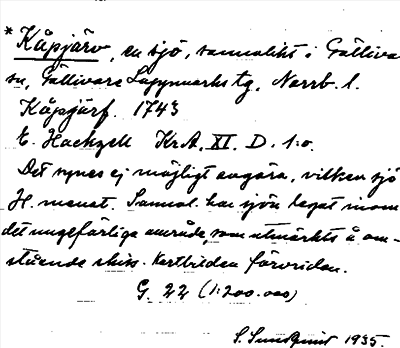 * Kåpjärv, en sjö, sannolikt i Gälliva
sn, Gällivare Lappmarks tg, Norrb. l.
Kåpjärf. 1743
E. Hackzell Kr.A. XI. D. 1:o.
Det synes ej möjligt avgöra, vilken sjö
H. menat. Sannol. har sjön legat inom
det ungefärliga område, som utmärkts å om-
stående skiss. Kartbilden förvriden.
G. 22 (1:200.000)
S. Sundquist 1935.